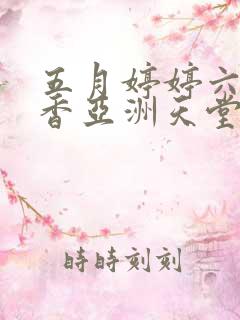 五月婷婷六
香亞洲天堂
時時刻刻